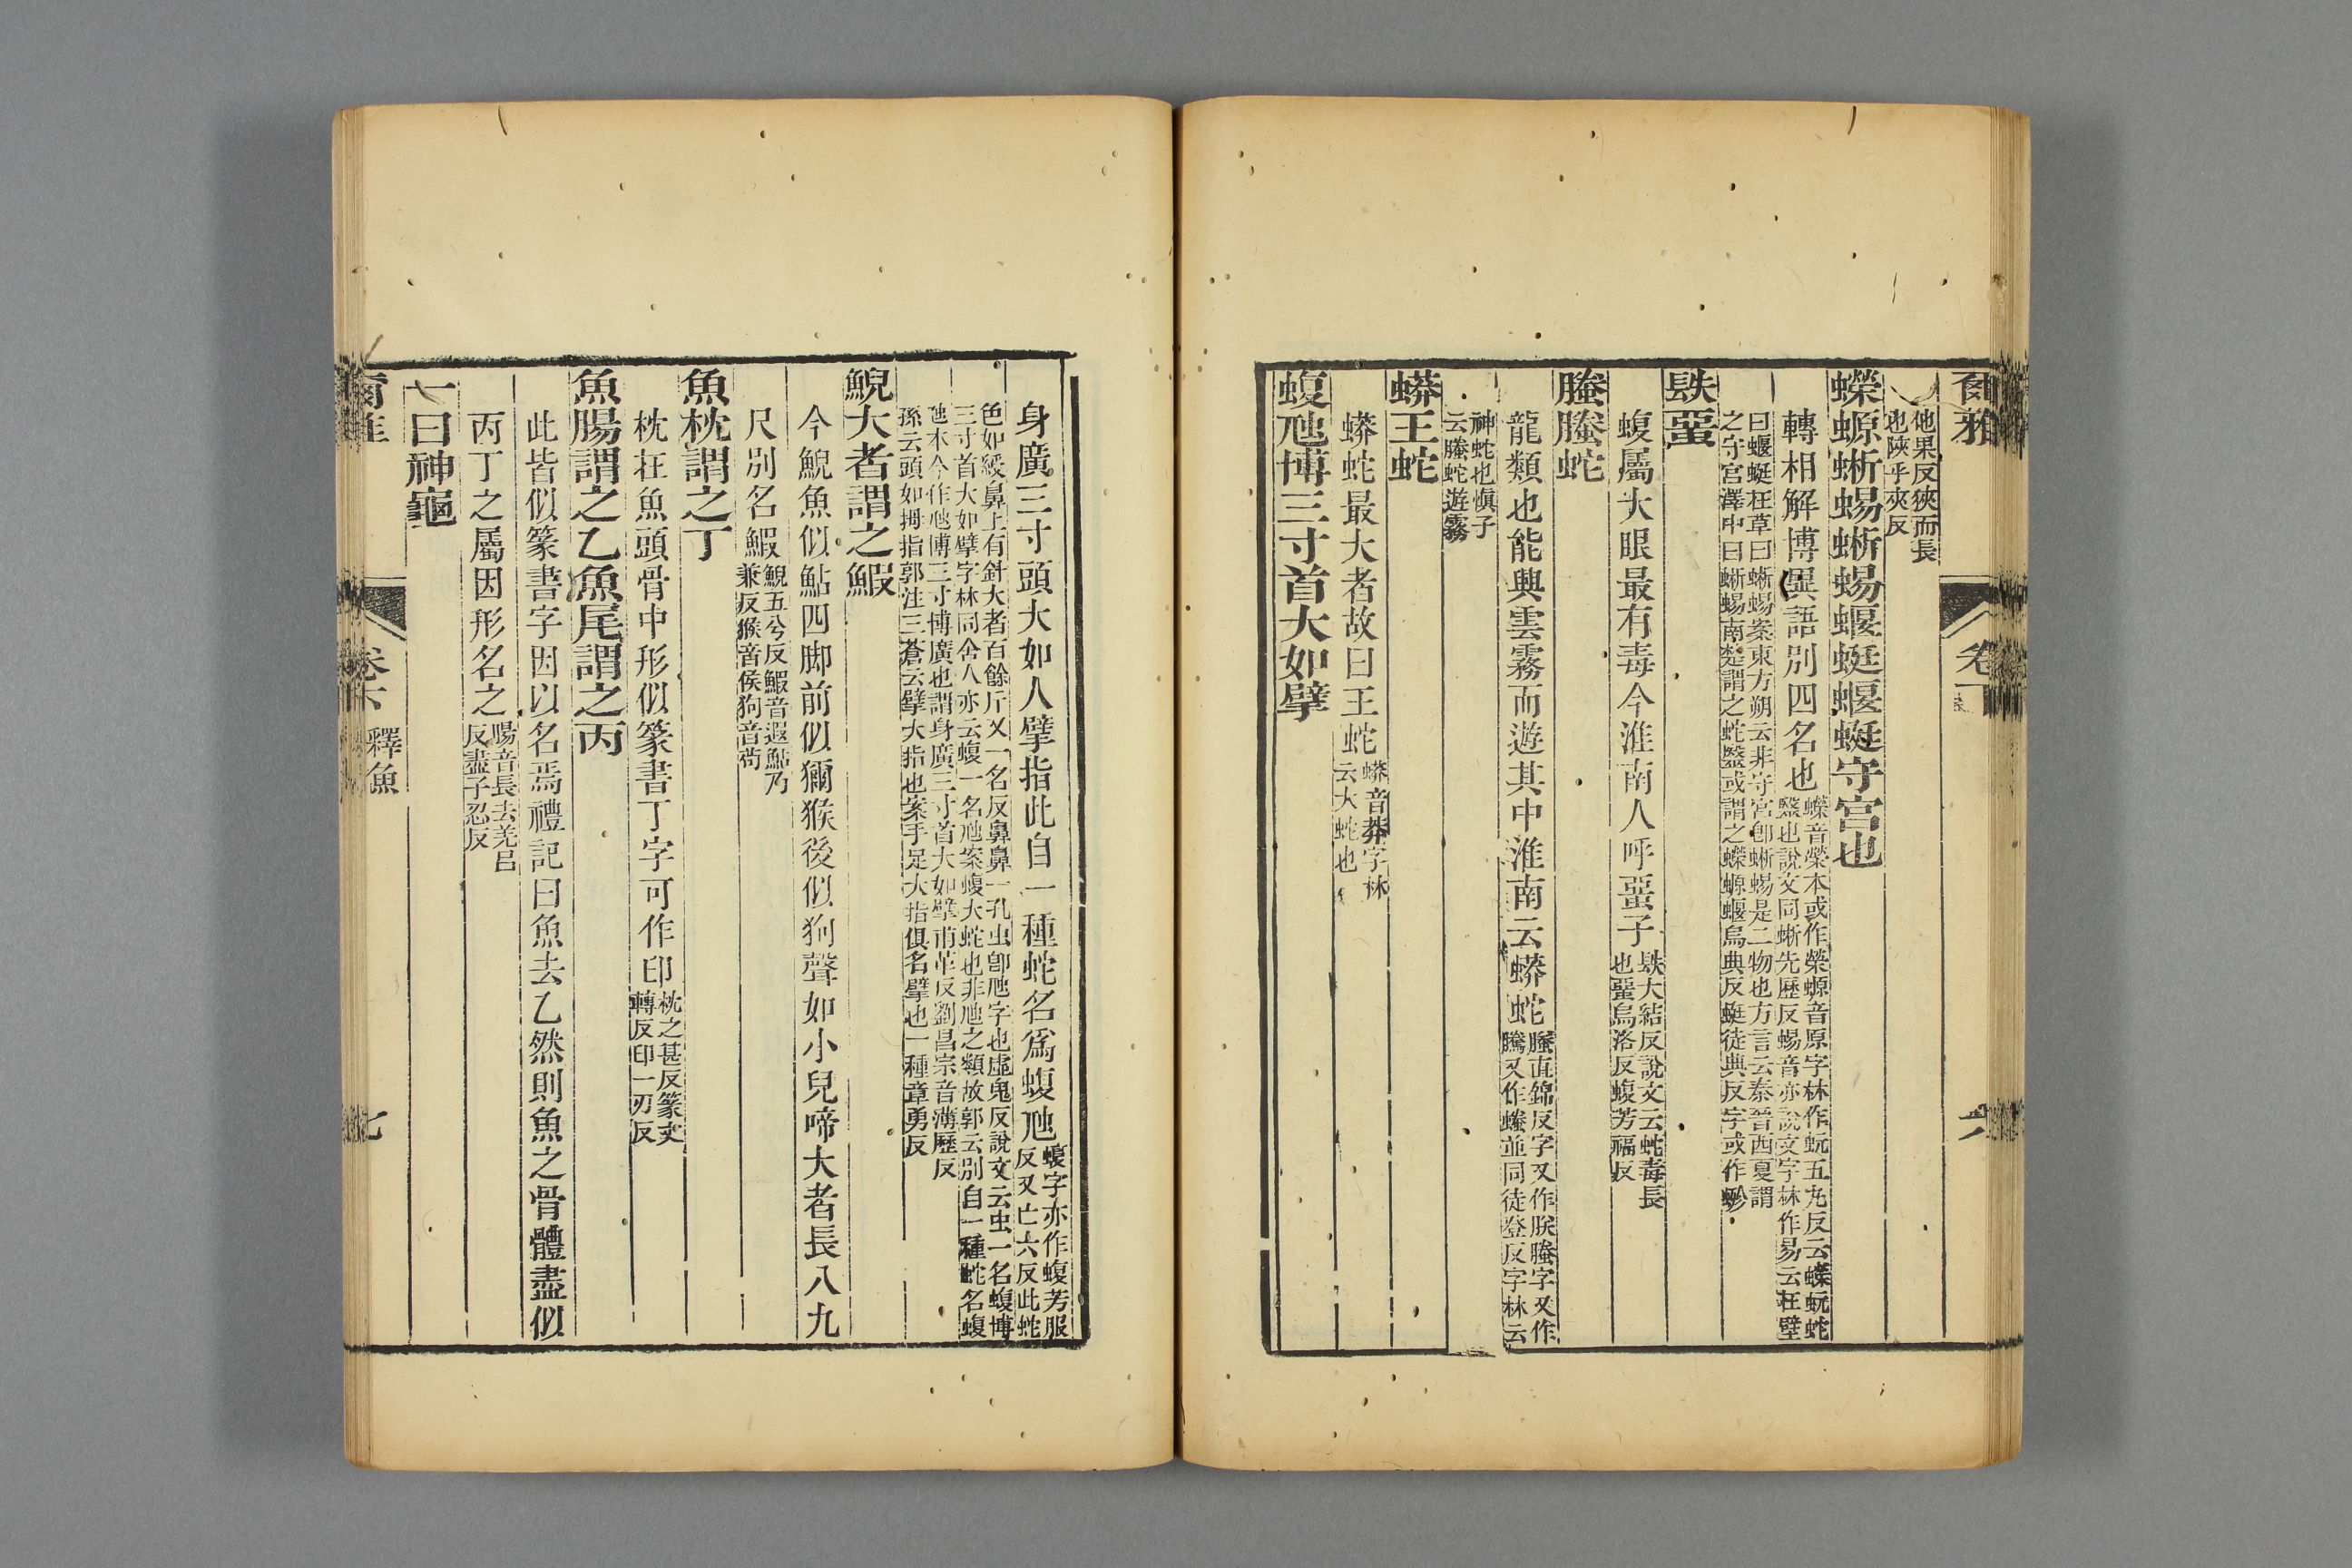 爾雅
卷下
六
他果反狹而長
也陝乎夾反
蠑螈蜥蜴蜥蜴蝘蜓蝘蜓守宮也
轉相解博異語別四名也
蠑音榮本或作榮螈音原字林作蚖五丸反云蠑蚖蛇
醫也說文同蜥先歷反蜴音亦說文字林作易云在壁
曰蝘蜓在草曰蜥蜴案東方朔云非守宮卽蜥蜴是二物也方言云秦晉西夏謂
之守宮澤中曰蜥蜴南楚謂之蛇醫或謂之蠑螈蝘烏典反蜓徒典反字或作蝘
镻蝁
蝮屬大眼最有毒今淮南人呼蝁子
镻大結反說文云蛇毒長
也蝁烏洛反蝮芳福反
螣螣蛇
龍類也能興雲霧而遊其中淮南云蟒蛇
螣直錦反字又作朕螣字又作
騰又作螣並同徒登反字林云
神蛇也愼子
云螣蛇遊霧
蟒王蛇
蟒蛇最大者故曰王蛇
蟒音莽字林
云大蛇也
蝮虺博三寸首大如擘
身廣三寸頭大如人擘指此自一種蛇名爲蝮虺
蝮字亦作蝮芳服
反又亡六反此蛇
色如綬鼻上有針大者百餘斤又一名反鼻鼻一孔虫卽虺字也虛鬼反說文云虫一名蝮博
三寸首大如擘字林同舍人亦云蝮一名虺案蝮大蛇也非虺之類故郭云別自一種蛇名蝮
虺本今作虺博三寸博廣也謂身廣三寸首大如擘甫革反劉昌宗音薄歷反
孫云頭如拇指郭注三蒼云擘大指也案手足大指俱名擘也一種章勇反
鯢大者謂之鰕
今鯢魚似鮎四脚前似獼猴後似狗聲如小兒啼大者長八九
尺別名鰕
鯢五兮反鰕音遐鮎乃
兼反猴音侯狗音苟
魚枕謂之丁
枕在魚頭骨中形似篆書丁字可作印
枕之甚反篆丈
轉反印一刃反
魚腸謂之乙魚尾謂之丙
此皆似篆書字因以名焉禮記曰魚去乙然則魚之骨體盡似
丙丁之屬因形名之
腸音長去羌呂
反盡子忍反
一曰神龜
爾雅
卷下
釋魚
七